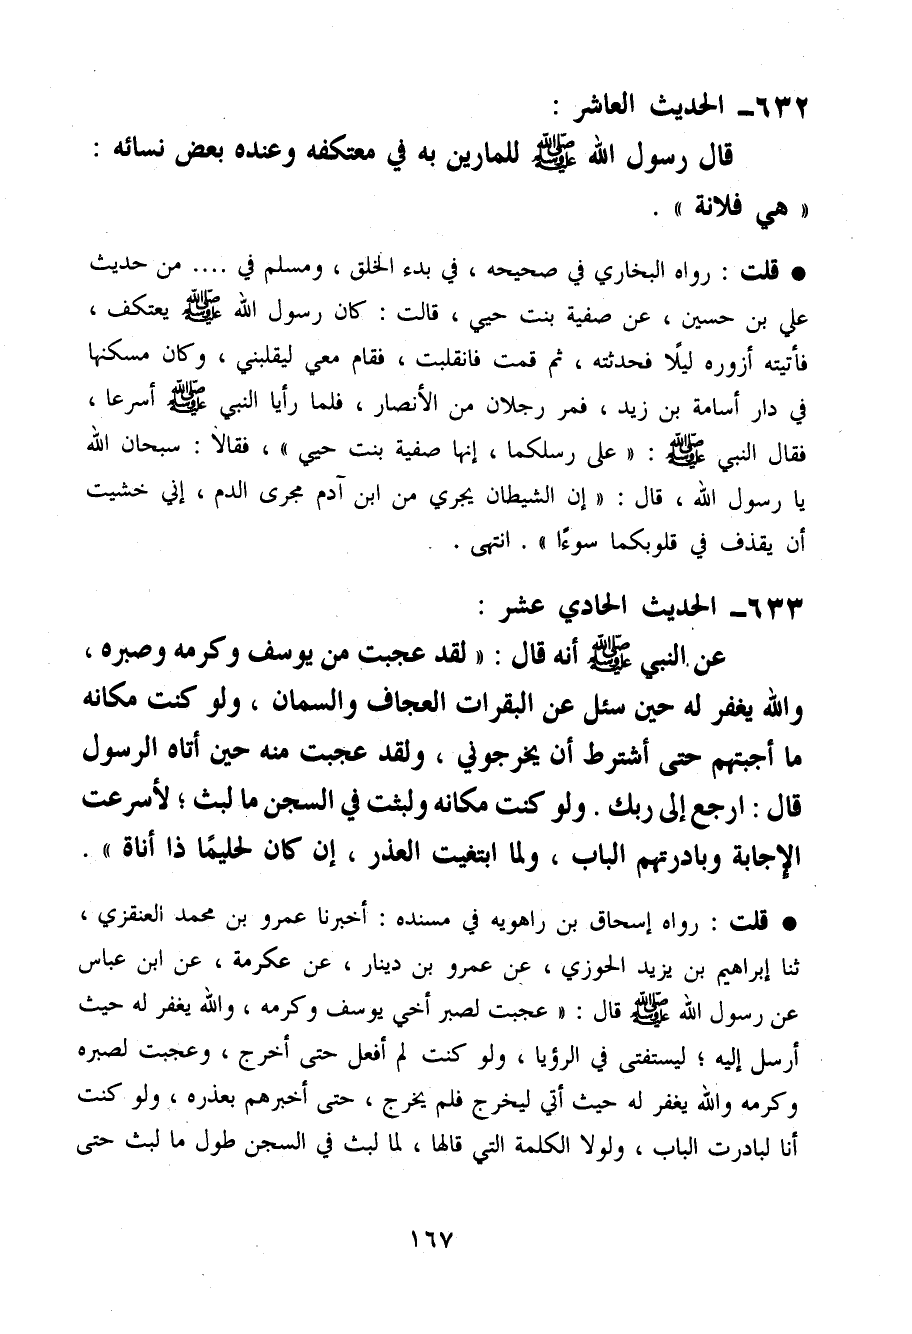 ٦٣٢ـ الحديث العاشر :
قال رسول الله ﷺ للمارين به في معتكفه وعنده بعض نسائه :
« هي فلانة » .
● قلت : رواه البخاري في صحيحه ، في بدء الخلق ، ومسلم في .... من حديث
علي بن حسين ، عن صفية بنت حيي ، قالت : كان رسول الله ﷺ يعتكف ،
فأتيته أزوره ليلًا فحدثته ، ثم قمت فانقلبت ، فقام معي ليقلبني ، وكان مسكنها
في دار أسامة بن زيد ، فمر رجلان من الأنصار ، فلما رأيا النبي ﷺ أسرعا ،
فقال النبي ﷺ : « على رسلكما ، إنها صفية بنت حيي » ، فقالا : سبحان الله
يا رسول الله ، قال : « إن الشيطان يجري من ابن آدم مجرى الدم ، إني خشيت
أن يقذف في قلوبكما سوءًا » . انتهى .
٦٣٣ـ الحديث الحادي عشر :
عن النبي ﷺ أنه قال : « لقد عجبت من يوسف وكرمه وصبره ،
والله يغفر له حين سئل عن البقرات العجاف والسمان ، ولو كنت مكانه
ما أجبتهم حتى أشترط أن يخرجوني ، ولقد عجبت منه حين أتاه الرسول
قال : ارجع إلى ربك . ولو كنت مكانه ولبثت في السجن ما لبث ؛ لأسرعت
الإجابة وبادرتهم الباب ، ولما ابتغيت العذر ، إن كان لحليمًا ذا أناة » .
● قلت : رواه إسحاق بن راهويه في مسنده : أخبرنا عمرو بن محمد العنقزي ،
ثنا إبراهيم بن يزيد الحوزي ، عن عمرو بن دينار ، عن عكرمة ، عن ابن عباس
عن رسول الله ﷺ قال : « عجبت لصبر أخي يوسف وكرمه ، والله يغفر له حيث
أرسل إليه ؛ ليستفتى في الرؤيا ، ولو كنت لم أفعل حتى أخرج ، وعجبت لصبره
وكرمه والله يغفر له حيث أتي ليخرج فلم يخرج ، حتى أخبرهم بعذره ، ولو كنت
أنا لبادرت الباب ، ولولا الكلمة التي قالها ، لما لبث في السجن طول ما لبث حتى
١٦٧